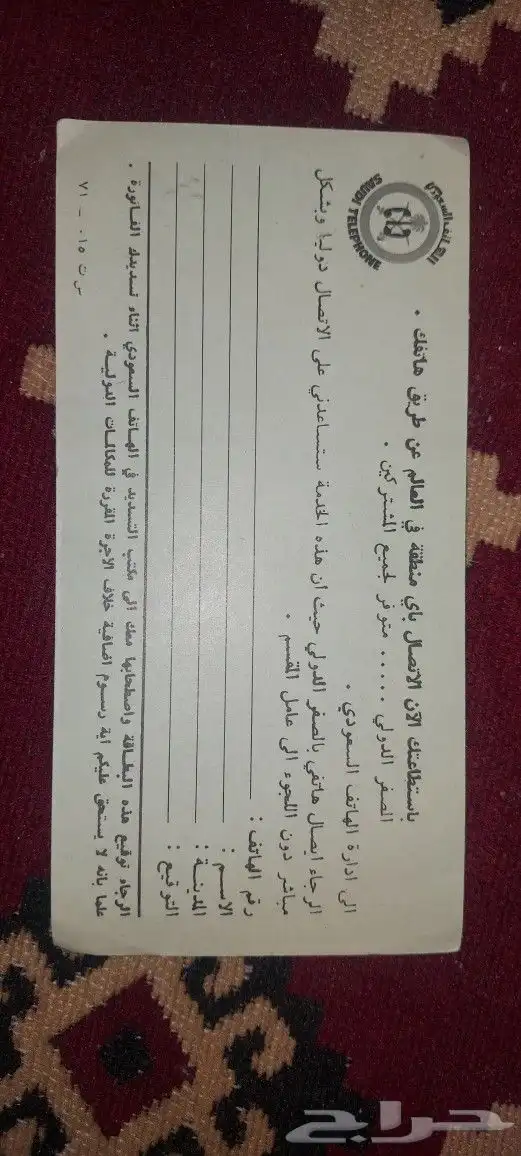 الهاتف السعودي
SAUDI TELEPHONE
باستطاعتك الآن الاتصال باي منطقة في العالم عن طريق هاتفك .
الصفر الدولي ..... متوفر لجميع المشتركين .
الى ادارة الهاتف السعودي .
الرجاء ايصال هاتفي بالصفر الدولي حيث ان هذه الخدمة ستساعدني على الاتصال دوليا وبشكل
مباشر دون اللجوء الى عامل المقسم .
رقم الهاتف :
الاسم :
المدينة :
التوقيع :
الرجاء توقيع هذه البطاقة واصطحابها معك الى مكتب التسديد في الهاتف السعودي اثناء تسديدك الفاتورة .
علما بانه لا يستحق عليكم اية رسوم اضافية خلاف الاجرة المقررة للمكالمات الدولية .
س ت ٠١٥ - ٧١
حراج